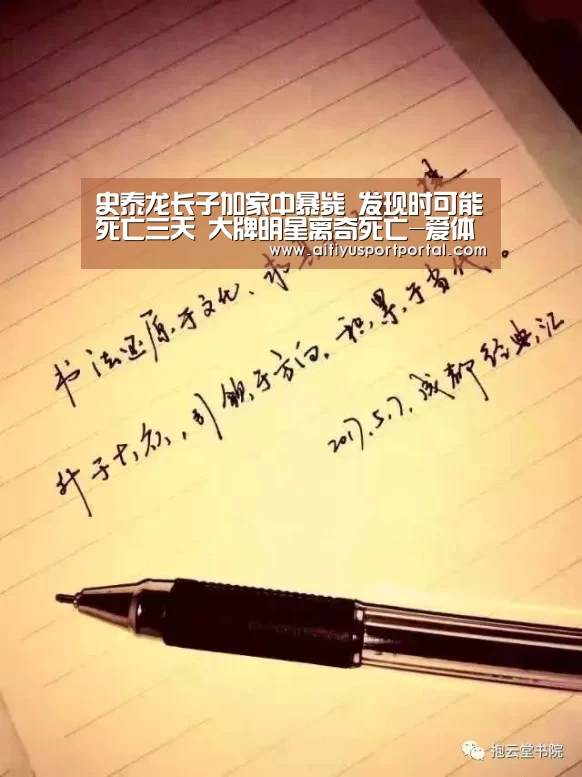 史泰龙长子加家中暴毙 发现时可能
死亡三天 大牌明星离奇死亡-爱体
www.aitiyusportportal.com
书法还原于文化、求
升于大众,引领于方向,积累于当代。
2017.5.7.成都经典汇
抱云堂书院